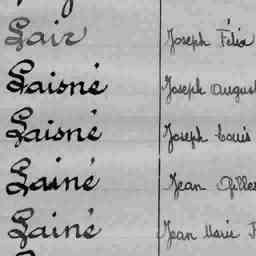 Lair Joseph Félix
Laisné Joseph August
Laisné Joseph Louis
Lainé Jean Gilles
Lainé Jean Marie